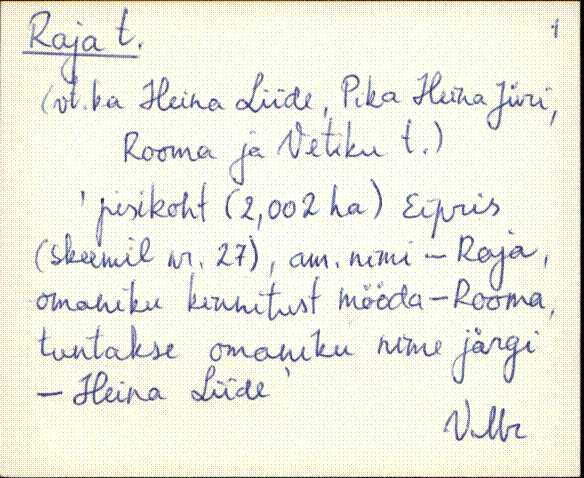 Raja t. 1
(vt. ka Heina Liide, Pika Heina Jüri,
Rooma ja Vetiku t.)
'pisikoht (2,002 ha) Eipris
(skeemil nr. 27), am. nimi – Raja,
omaniku kinnitust mööda – Rooma,
tuntakse omaniku nime järgi
– Heina Liide'
V.Mr